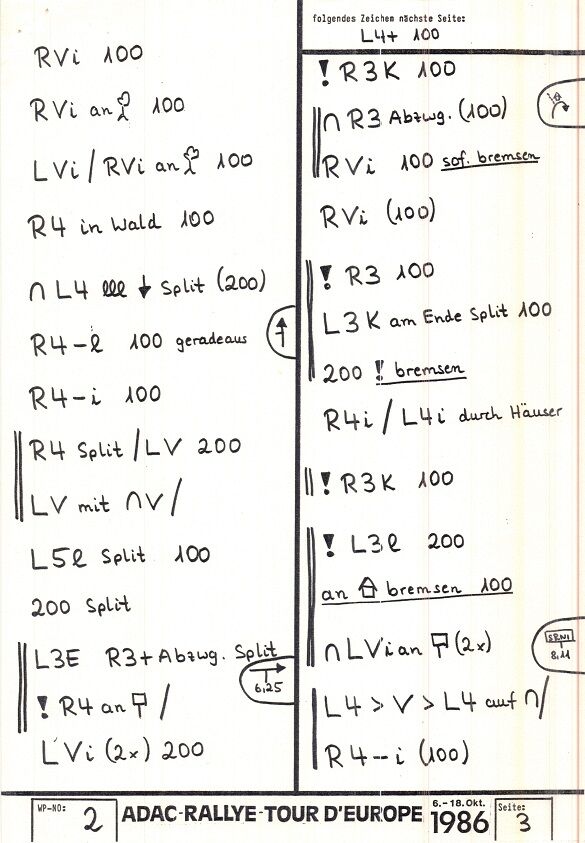 RVi 100
RVi an 100
LVi / RVi an 100
R4 in Wald 100
∩ L4 lll ↓ Split (200)
R4 - l 100 geradeaus
R4 - i 100
R4 Split / LV 200
LV mit ∩V /
L5l Split 100
200 Split
L3E R3 + Abzwg. Split
6,25
! R4 an /
LVi (2x) 200
folgendes Zeichem nächste Seite:
L4+ 100
! R3K 100
∩ R3 Abzwg. (100)
RVi 100 sof. bremsen
RVi (100)
! R3 100
L3K am Ende Split 100
200 ! bremsen
R4i / L4i durch Häuser
! R3K 100
! L3l 200
an bremsen 100
∩ LVi an (2x)
8,11
L4 > V > L4 auf ∩/
R4 -- i (100)
WP-NO: 2
ADAC-RALLYE-TOUR D'EUROPE
6.-18.Okt. 1986
Seite: 3